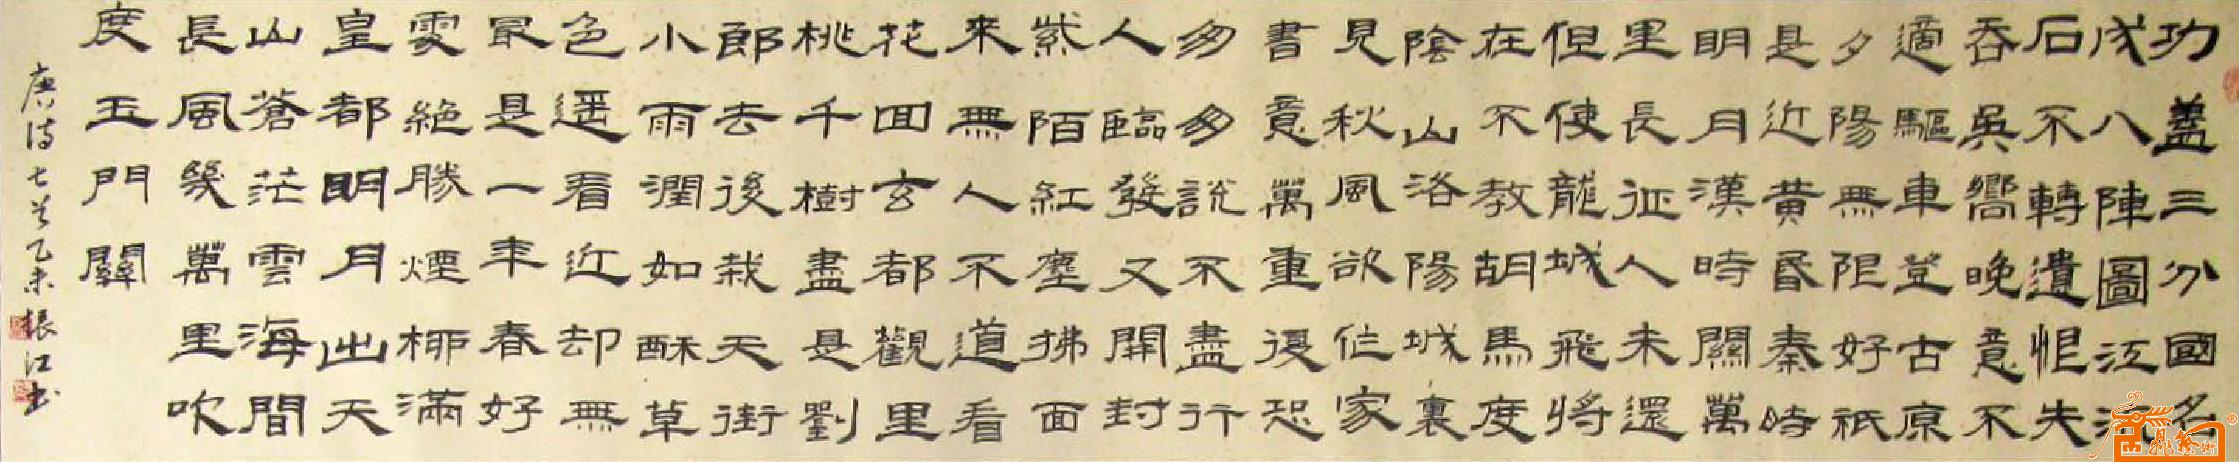 功蓋三分國名
成八陣圖江流
石不轉遺恨失
吞吳嚮晚意不
適驅車登古原
夕陽無限好祇
是近黄昏秦時
明月漢時關萬
里長征人未還
但使龍城飛將
在不教胡馬度
陰山洛陽城裏
見秋風欲作家
書意萬重復恐
匆匆說不盡行
人臨發又開封
紫陌紅塵拂面
來無人不道看
花回玄都觀里
桃千樹盡是劉
郎去後栽天街
小雨潤如酥草
色遥看近却無
最是一年春好
處絕勝煙柳滿
皇都明月出天
山蒼茫雲海間
長風幾萬里吹
度玉門關
唐詩七首乙未振江书